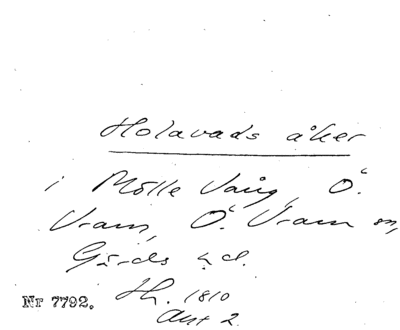 Holavads åker
i Mölle Vång, Ö.
Vram, Ö. Vram sn,
Gärds hd.
Nr 7792. Hh. 1810
Akt 2.